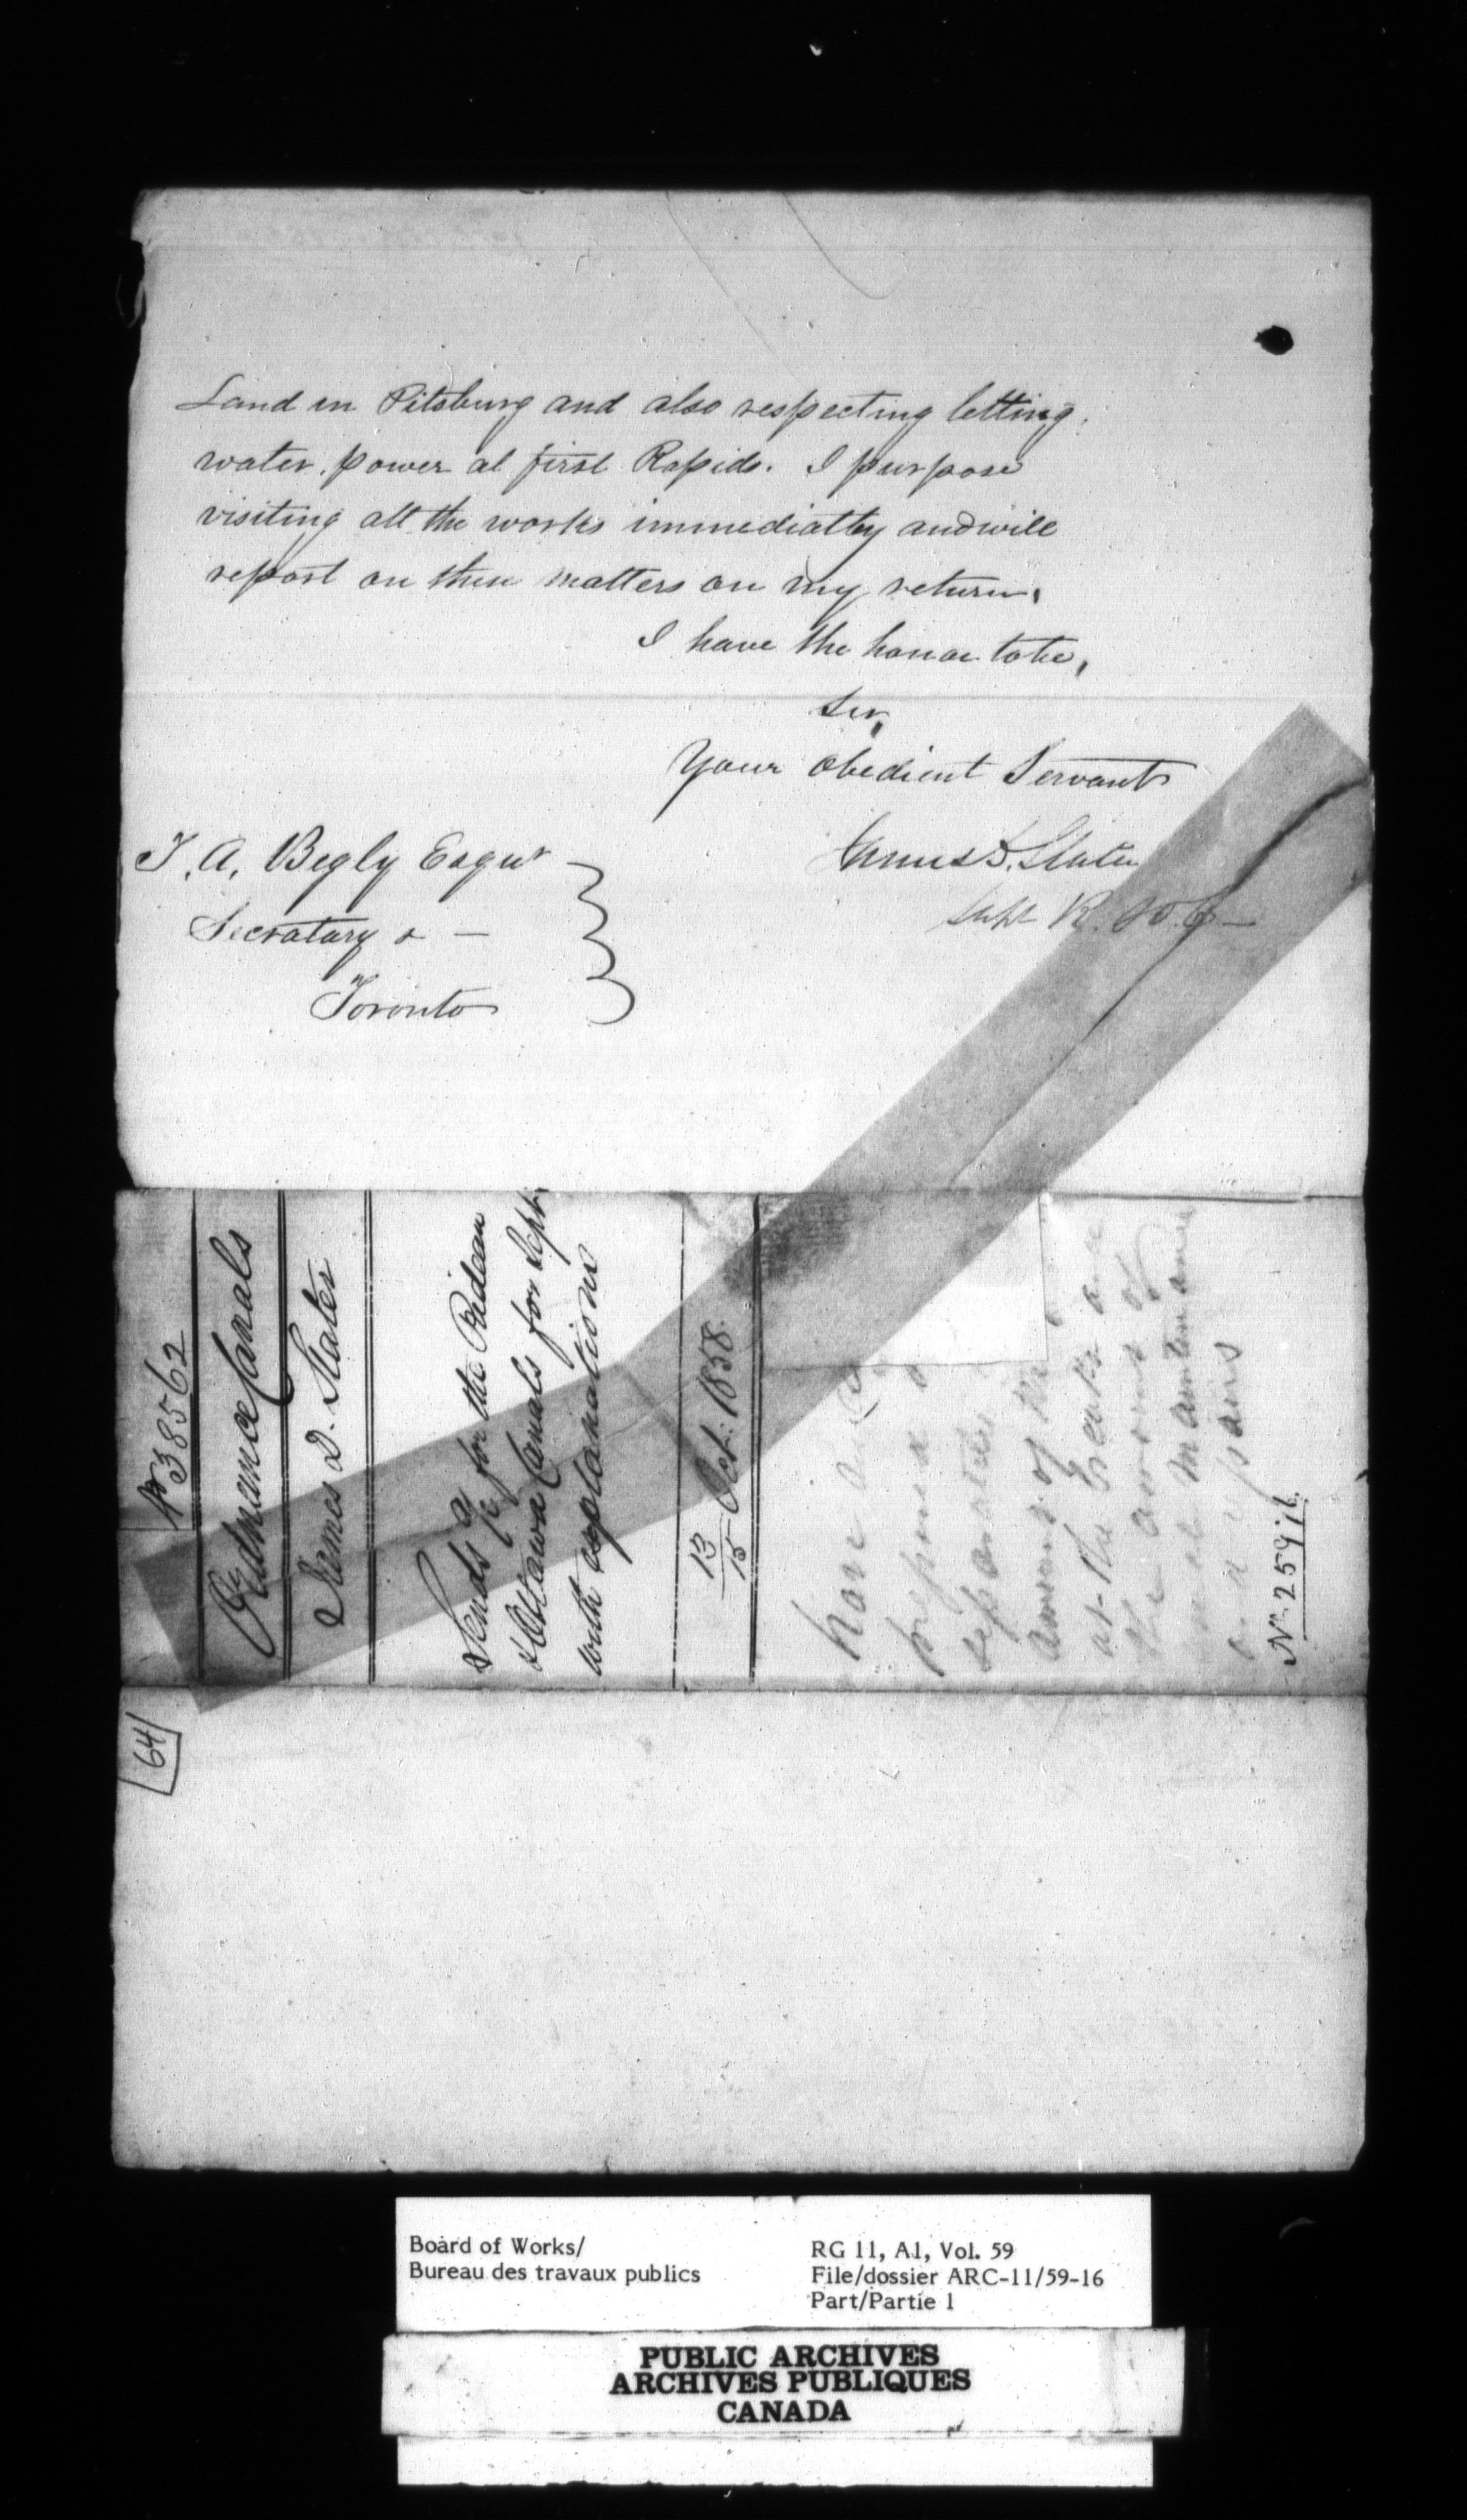 Land in Pitsburg and also respecting letting
water power at first Rapids. I purpose
visiting all the works immediatly and will
report on these matters on my return.
I have the honor to be,
Sir,
Your Obedient Servant
James D. Slater
Supt R. & O. C
T. A. Begly Esqur
Secratary & -
Toronto
No 38562
Ordnance Canals
James D. Slater
Sends a/ for the Rideau
& Ottawa Canals for Sept.
with explanations
13/15 Oct. 1858.
have a
prepared
separate
amount of the
at the
the amount of
maintenance
repairs
No 25971
64
Board of Works/
Bureau des travaux publics
RG 11, A1, Vol. 59
File/dossier ARC-11/59-16
Part/Partie 1
PUBLIC ARCHIVES
ARCHIVES PUBLIQUES
CANADA